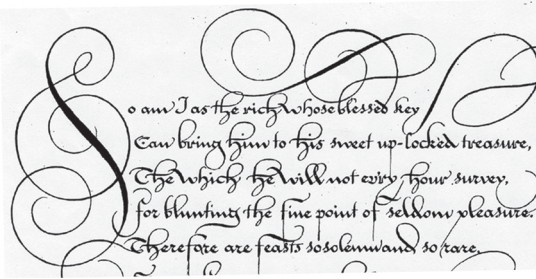 So am I as the rich whose blessed key
Can bring him to his sweet up-locked treasure,
The which he will not ev'ry hour survey,
for blunting the fine point of seldom pleasure.
Therefore are feasts so solemn and so rare,